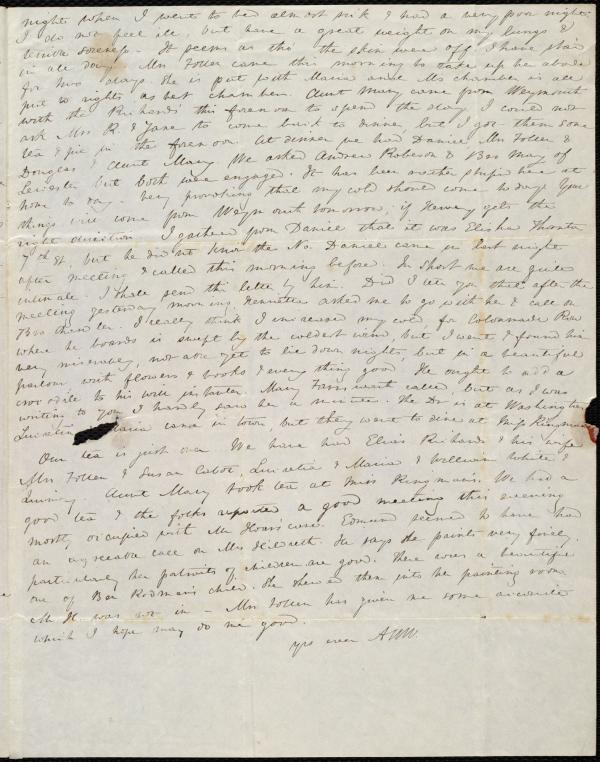 night when I went to bed almost sick & had a very poor night.
I do not feel ill, but have a great weight on my lungs &
soreness. It seems as tho' the skin were off. I have staid
in all day. Mrs Follen came this morning to take up her abode
for two days. She is put with Maria and Ms chamber is all
put to rights as best chamber. Aunt Mary came from Weymouth
with the Richards this forenoon to spend the day I could not
ask Mrs R & Jane to come back to dinner, but I got them some
tea & pie in the forenoon. At dinner we had Daniel, Mrs Follen &
Douglass & Aunt Mary. We asked Andrew Robeson & Bro May of
Leicester but both were engaged. It has been rather stupid here at
home to day. Very provoking that my cold should come to day. Your
things will come from Weymouth tomorrow, if Hervey gets the
right direction. I gathered from Daniel that it was Elisha Thornton
7th St. but he did not know the No. Daniel came in last night
after meeting & called this morning before. In short we are quite
intimate. I shall send this letter by him. Did I tell you that after the
meeting yesterday morning Henrietta asked me to go with her & call on
Bro. I really think I increased my cold, for Colonnade Row
where he boards is swept by the coldest wind, but I went & found him
very miserable, not able yet to lie down nights, but in a beautiful
parlour, with flowers & books & every thing good. He ought to add a
crocodile to his will instanter. Mary called, but as I was
writing to you I hardly saw her a minute. The Dr is at Washington
Lucretia Maria came in town, but they went to dine at Miss Kingman's
Our tea is just over. We have had Richards & his wife
Mrs Follen & Susan Cabot, Lucretia & Maria & William White &
Aunt Mary took tea at Miss Kingman's. We had a
good tea & the folks reported a good meeting this evening
mostly occupied with Mr case. Edmund seemed to have had
an agreeable call on Mrs Hildreth. He says she paints very finely,
particularly her portraits of children are good. There was a beautiful
one of Ben Rodman's child. She shewed them into her painting room
Mr H. was not in – Mrs Follen has given me some aconite
which I hope may do me good.
yrs ever AWW.